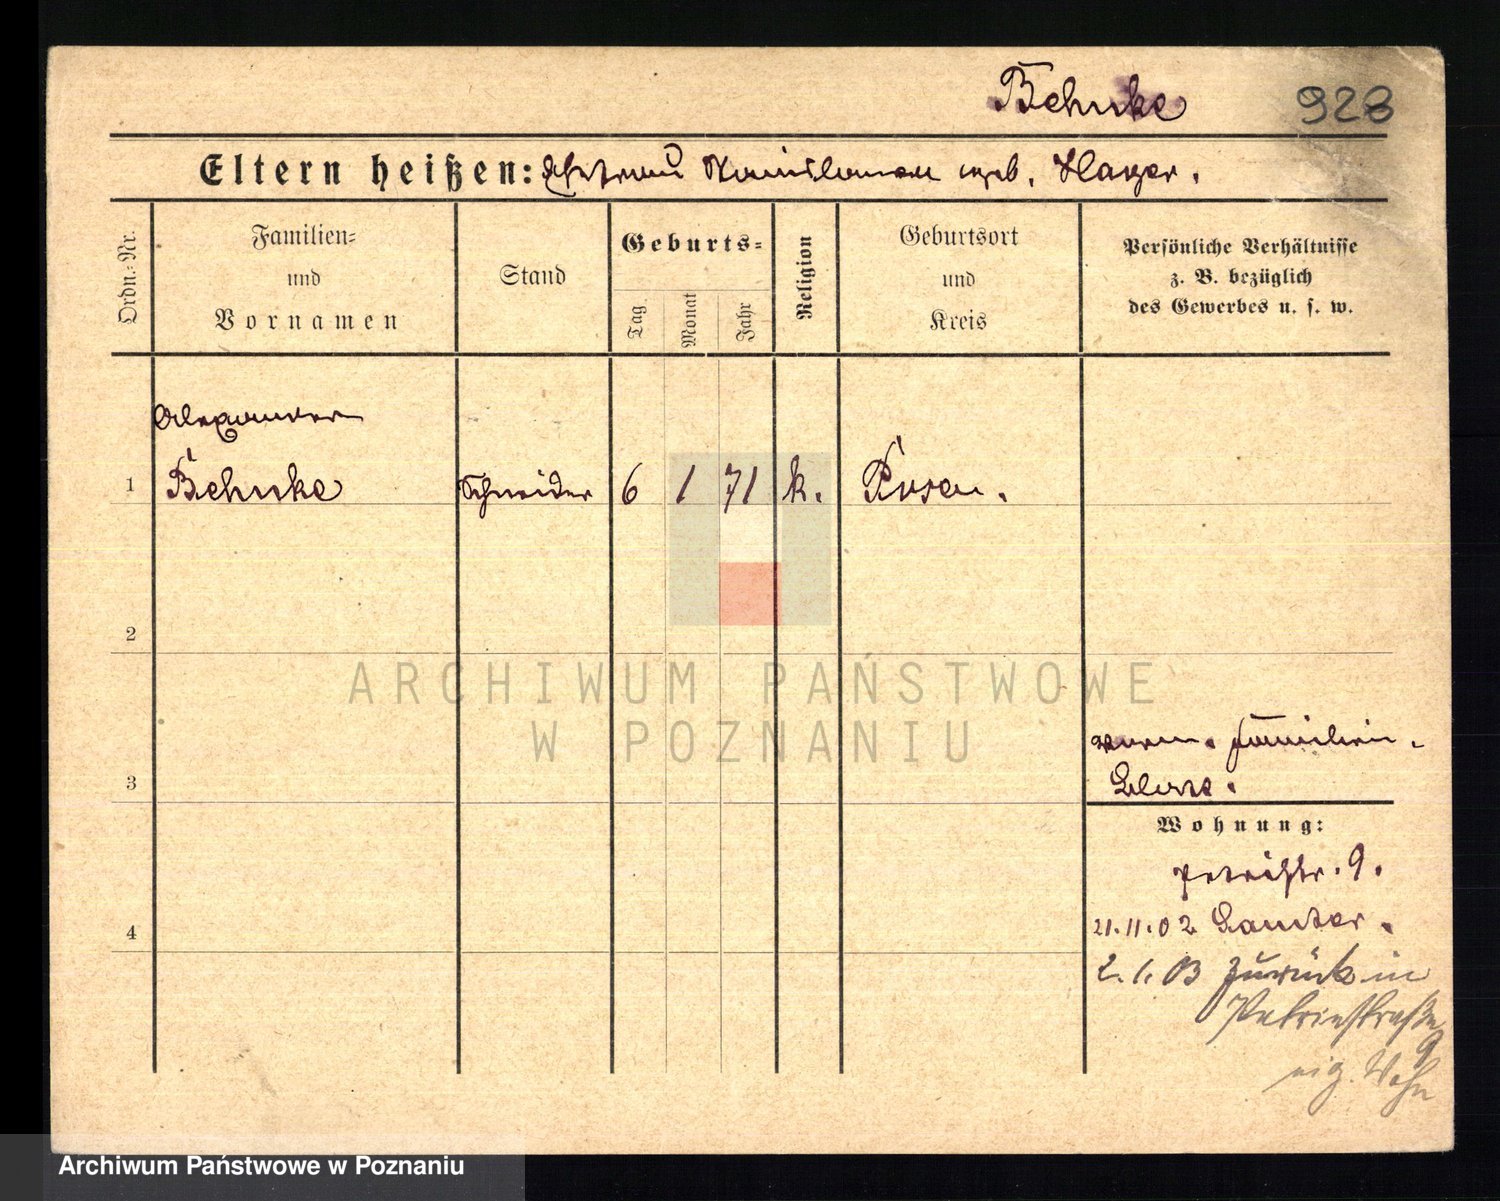 Behnke 928
Eltern heißen: Ehefrau Stanislawa geb. Hager.
Ordn.-Nr.
Familien-
und
Vornamen
Stand
Geburts-
Tag
Monat
Jahr
Religion
Geburtsort
und
Kreis
Persönliche Verhältnisse
z. B. bezüglich
des Gewerbes u. s. w.
Alexander
1 Behnke Schneider 6 1 71 k. Posen.
2
3
4
Familien-
Wohnung:
Petristr. 9.
21.11.02 Samter.
2.1.03 zurück in
Petristraße
9
eig. Wohn
ARCHIWUM PAŃSTWOWE
W POZNANIU
Archiwum Państwowe w Poznaniu